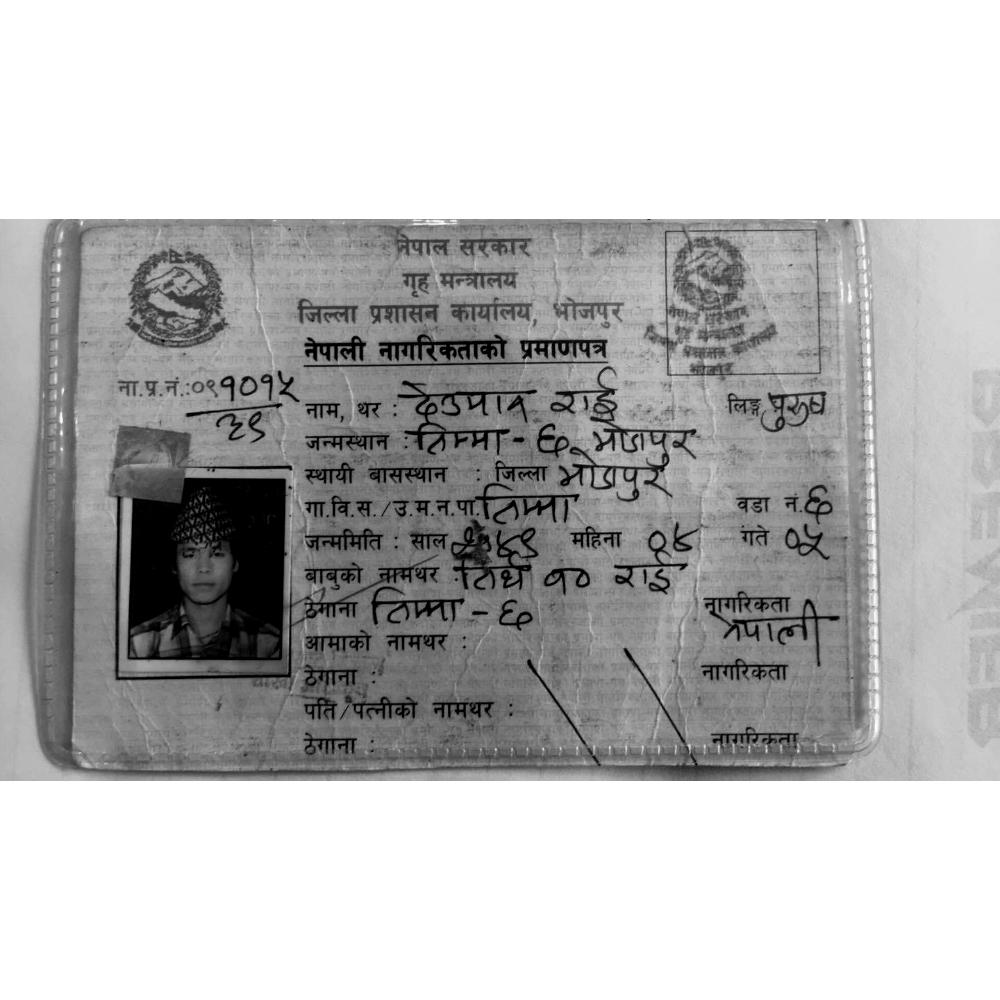 नेपाल सरकार
गृह मन्त्रालय
जिल्ला प्रशासन कार्यालय, भोजपुर
नेपाली नागरिकताको प्रमाणपत्र
ना.प्र.नं.:०९१०१५
नाम, थर : राई लिङ्ग पुरुष
जन्मस्थान : तिम्मा - ६ भोजपुर
स्थायी बासस्थान : जिल्ला भोजपुर
गा.वि.स./उ.म.न.पा. तिम्मा वडा नं. ६
जन्ममिति : साल महिना गते ०५
बाबुको नामथर : राई
ठेगाना तिम्मा - ६ नागरिकता नेपाली
आमाको नामथर :
ठेगाना : नागरिकता
पति/पत्नीको नामथर :
ठेगाना : नागरिकता